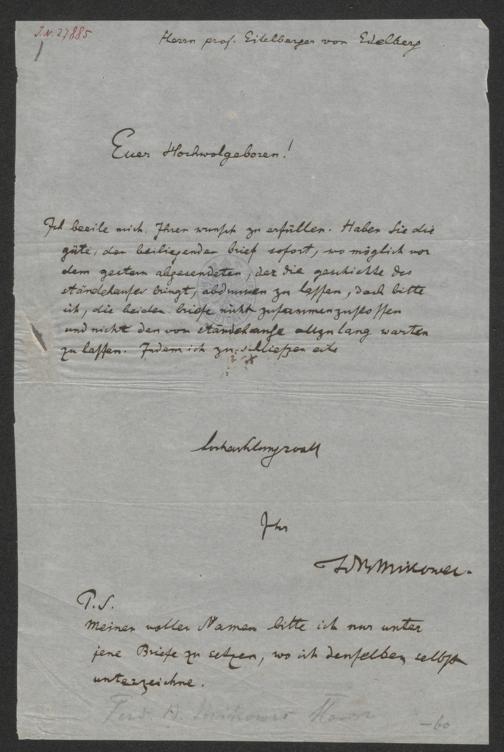 I.N. 27885
1
Herrn prof. Eitelberger von Edelberg
Euer Hochwolgeboren!
Ich beeile mich, Ihren wunsch zu erfüllen. Haben Sie die
güte, den beiliegenden brief sofort, wo möglich vor
dem gestern abgesendeten, der die geschichte des
ständehauses bringt, abdrucken zu lassen, doch bitte
ich, die beiden briefe nicht zusammenzustossen
und nicht den vom ständehause allzulang warten
zu lassen. Indem ich zu schliessen eile
hochachtungsvoll
Ihr
P.S.
Meinen vollen Namen bitte ich nur unter
jene Briefe zu setzen, wo ich denselben selbst
unterzeichne.
Ferd. B. Mikowec
-60